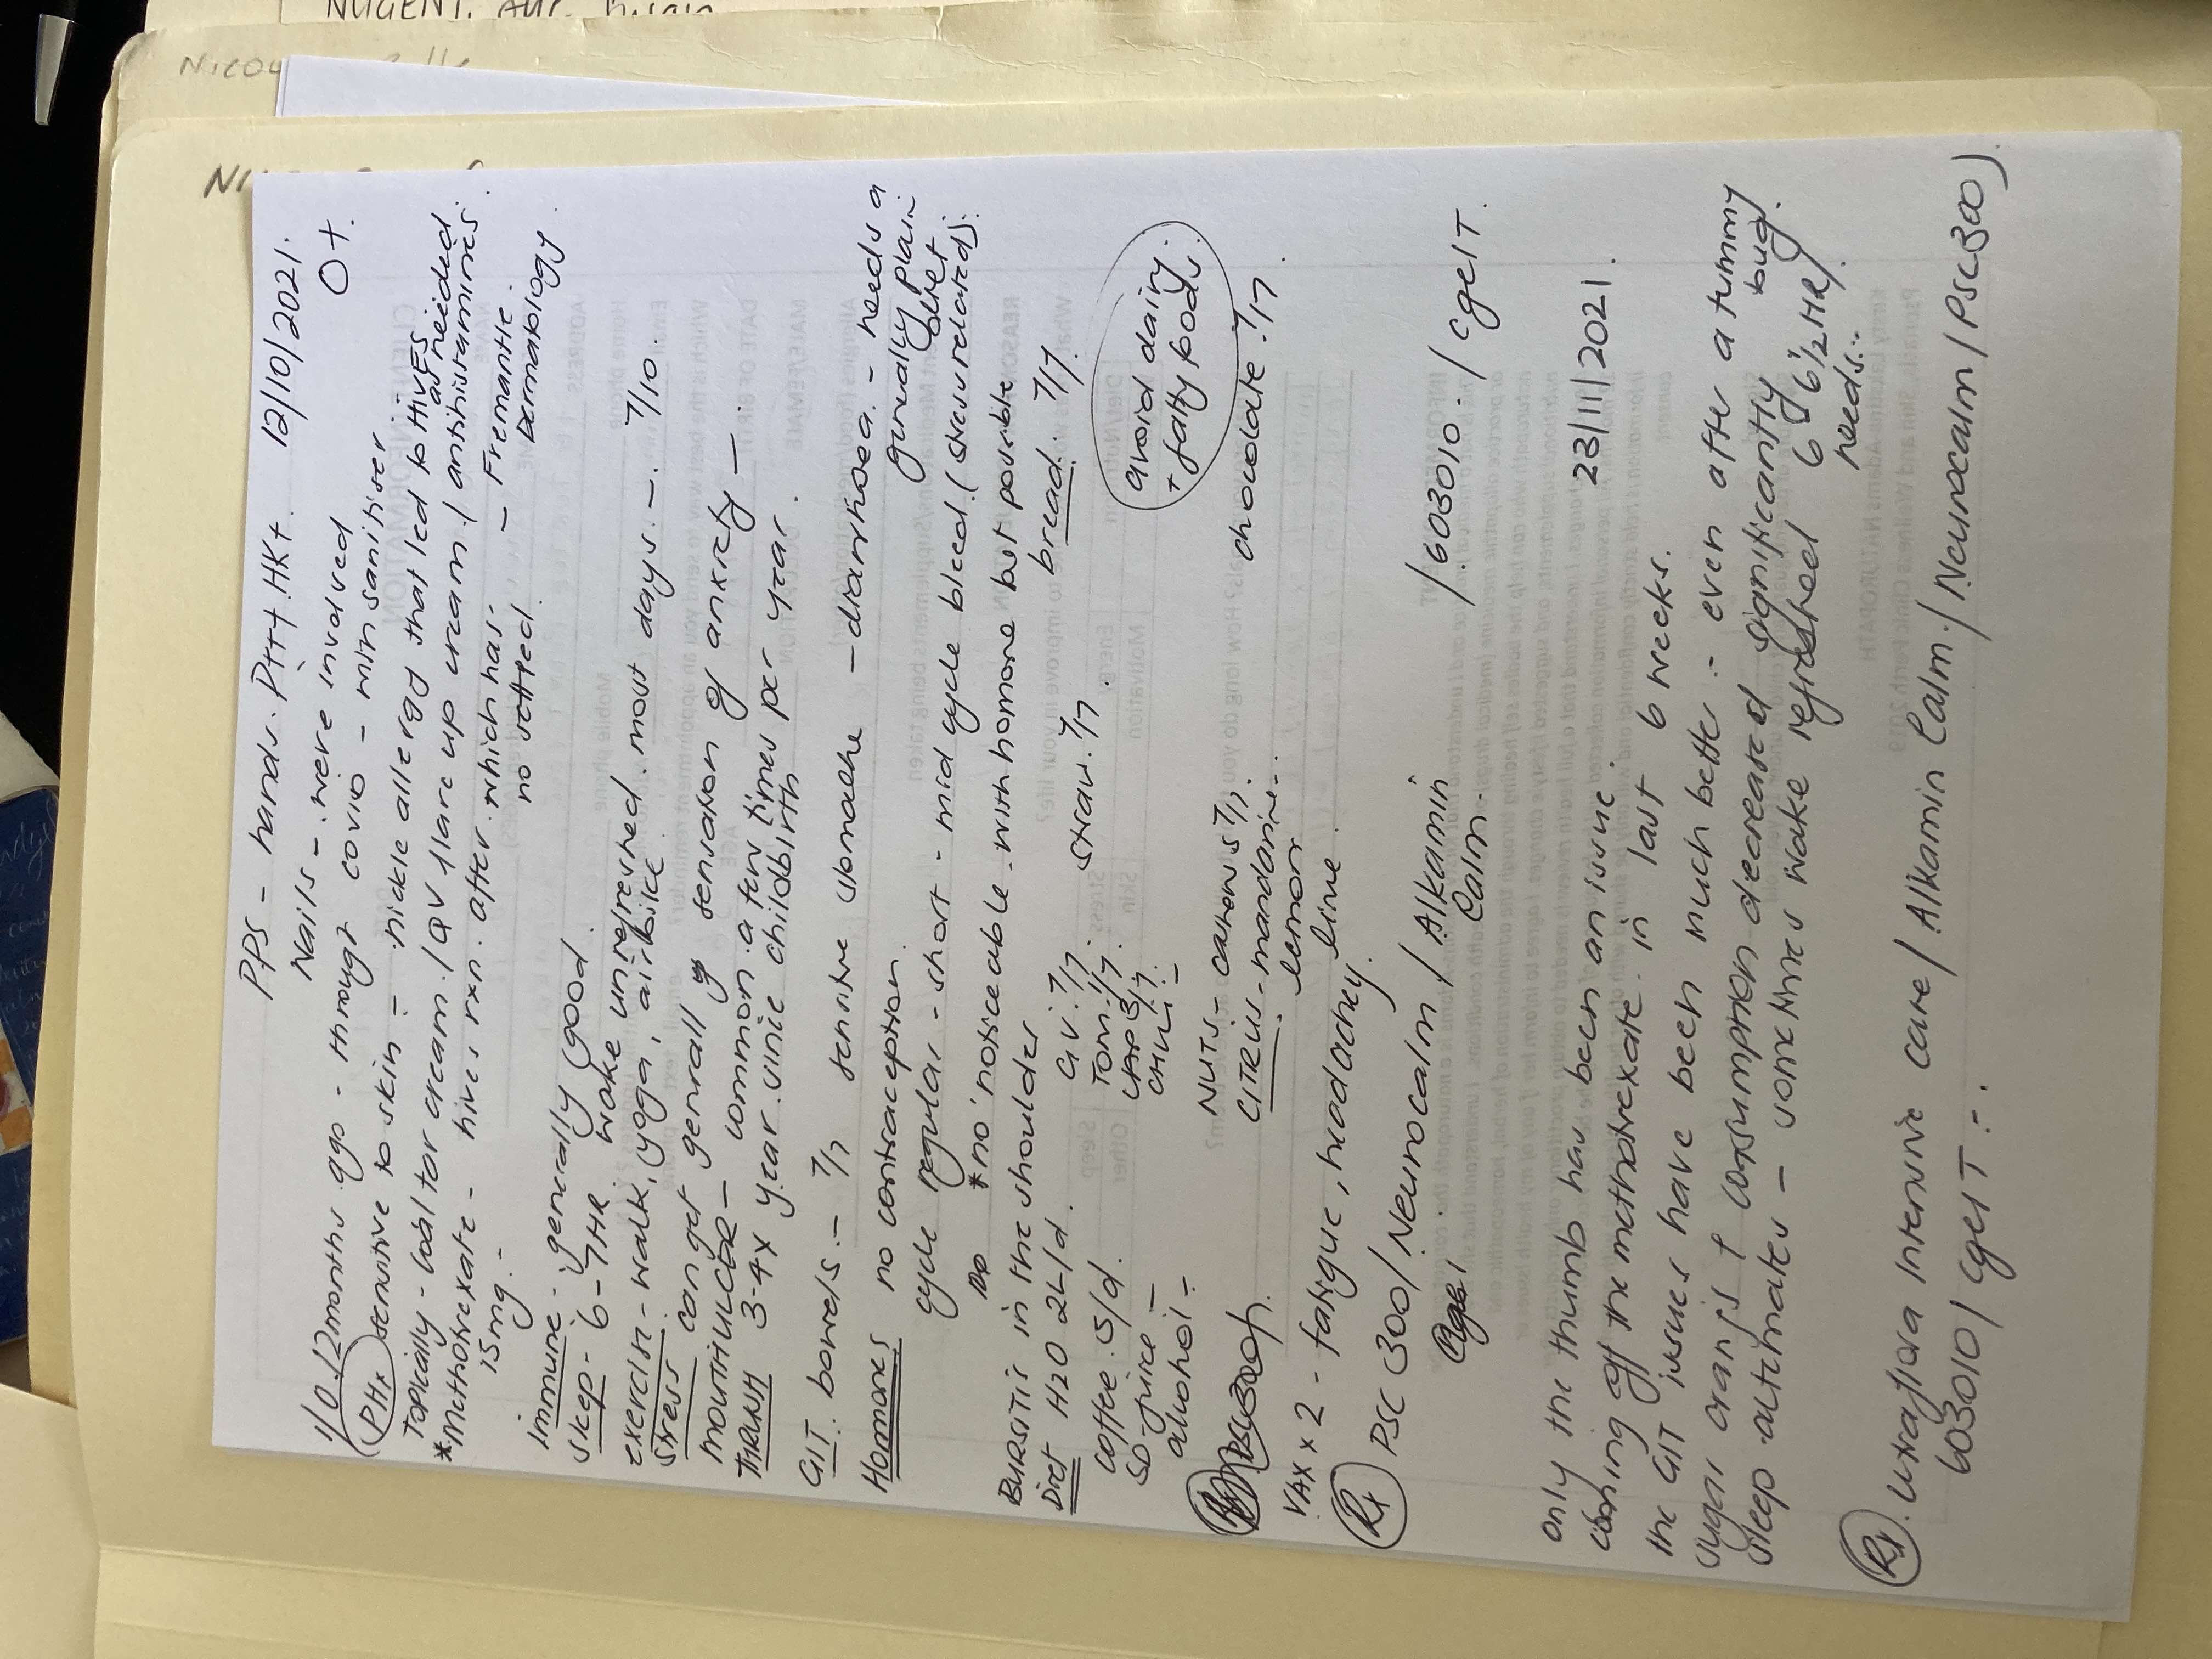 NUGENT.
PPS - hands. P+++ HK+ 12/10/2021.
Nails - were involved O+
1/0 12 months ago - through covid - min sanitiser
PHx sensitive to skin - nickle allergy that led to HIVES
Topically - coal tar cream / QV flare up cream / antihistamines as needed
*Methotrexate - hives rxn. after which has - Fremantle
15mg - no settled. Dermatology
immune - generally good.
sleep - 6-7HR wake unrefreshed. most days - 7/10.
exercise - walk, yoga, airbike
stress can get generally sensation of anxiety -
MOUTH ULCER - common a few times per year.
THRUSH 3-4x year since childbirth
GIT. bowels - 7/7 sensitive stomache - diarrhoea - needs a
generally plain
diet
Hormones no contraception.
cycle regular - short - mid cycle bleed (stress related).
*no noticeable with hormone but possible
BURSITIS in the shoulder
Diet H2O 2L/d. G.V. 7/7. straw. 7/7. bread. 7/7.
coffee. 5/d. TOM. 1/7.
SD-juice - CAP 3/7.
alcohol - CHILI -
avoid dairy
+ fatty foods.
NUTS - cashews 7/7. chocolate 7/7.
CITRUS - mandarine
lemon
lime
VAX x 2 - fatigue, headachey.
Rx PSC 300 / Neurocalm / Alkamin / 603010. / CgelT.
Calm.
23/11/2021.
only the thumb has been an issue.
coming off the methotrexate in last 6 weeks.
the GIT issues have been much better - even after a tummy
bug.
sugar cravings & consumption decreased significantly
sleep alternates - sometimes wake refreshed 6 of 6 1/2 HR/
needs...
Rx. Ultraflora intensive care / Alkamin Calm. / Neurocalm / PSC300).
603010 / CgelT -.